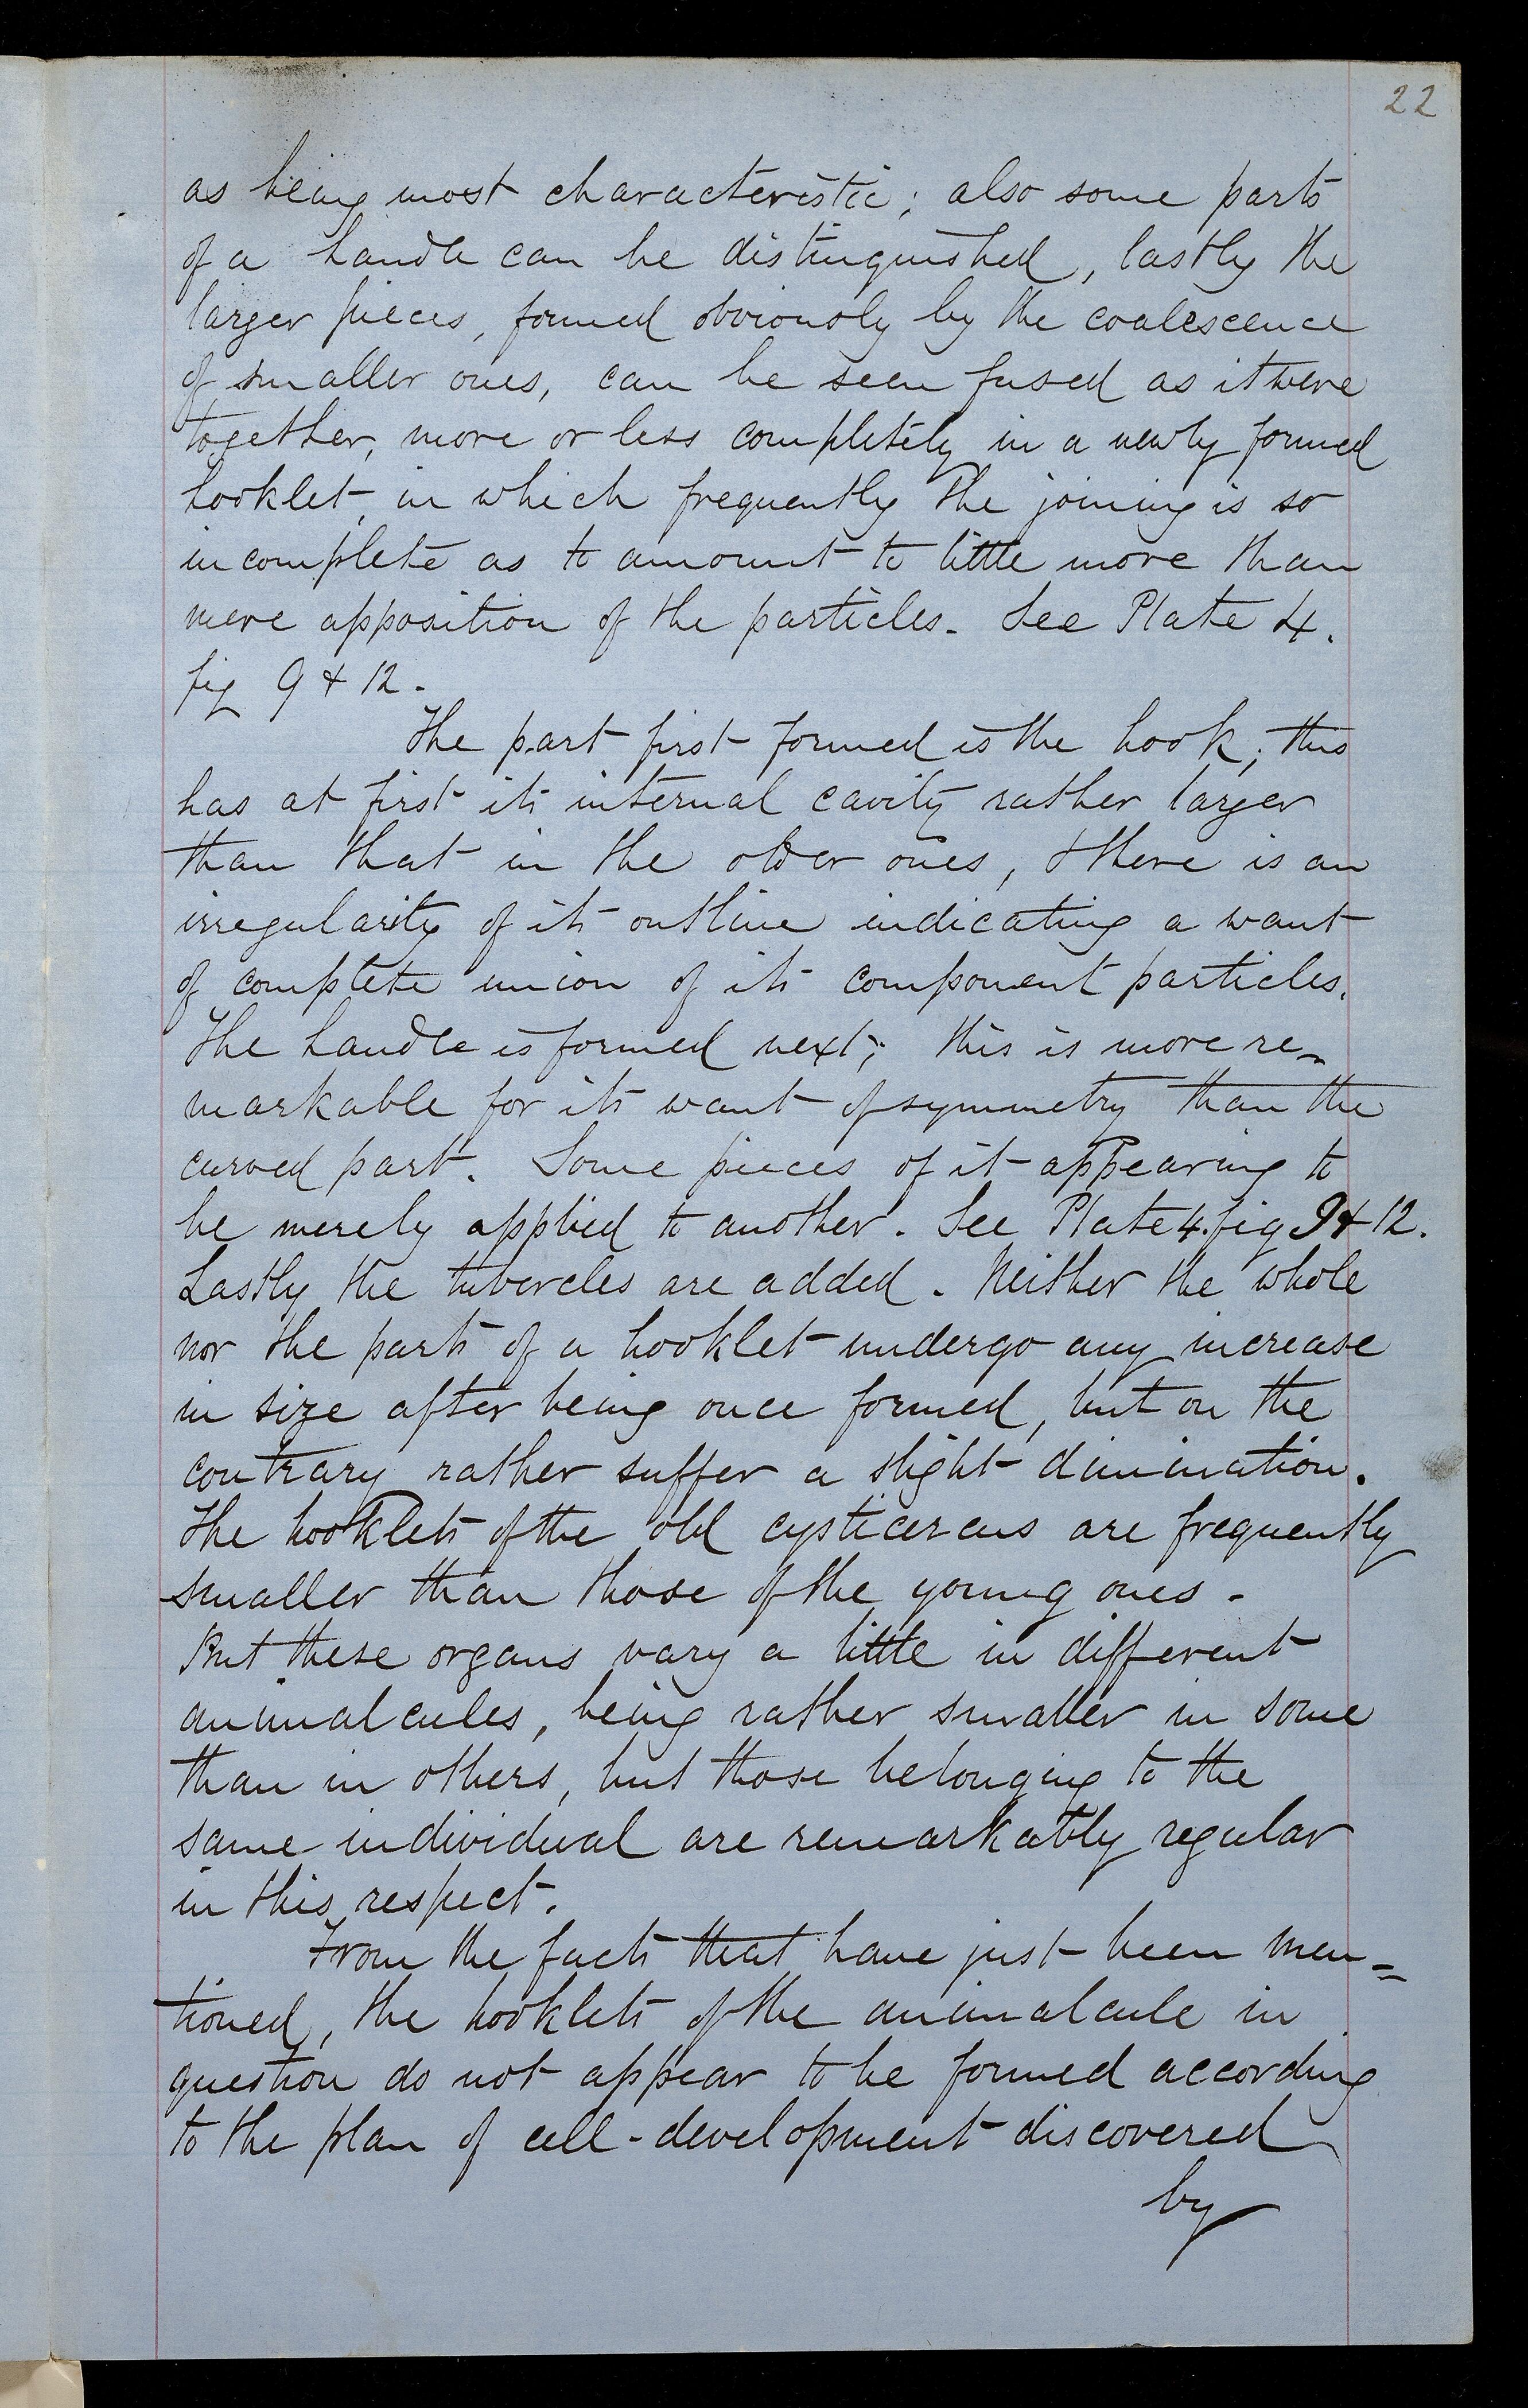 22
as being most characteristic; also some parts
of a handle can be distinguished, lastly the
larger pieces, formed obviously by the coalescence
of smaller ones, can be seen fused as it were
together, more or less completely in a newly formed
hooklet, in which frequently the joining is so
incomplete as to amount to little more than
mere apposition of the particles. See Plate 4.
fig 9 & 12.
The part first formed is the hook; this
has at first its internal cavity rather larger
than that in the older ones, & there is an
irregularity of its outline indicating a want
of complete union of its component particles.
The handle is formed next; this is more re-
markable for its want of symmetry than the
curved part. Some pieces of it appearing to
be merely applied to another. See Plate 4. fig 9 & 12.
Lastly the tubercles are added. Neither the whole
nor the parts of a hooklet undergo any increase
in size after being once formed, but on the
contrary rather suffer a slight diminution.
The hooklets of the old cysticercus are frequently
smaller than those of the young ones.
But these organs vary a little in different
animalcules, being rather smaller in some
than in others, but those belonging to the
same individual are remarkably regular
in this respect.
From the facts that have just been men=
tioned, the hooklets of the animalcule in
question do not appear to be formed according
to the plan of cell-development discovered
by